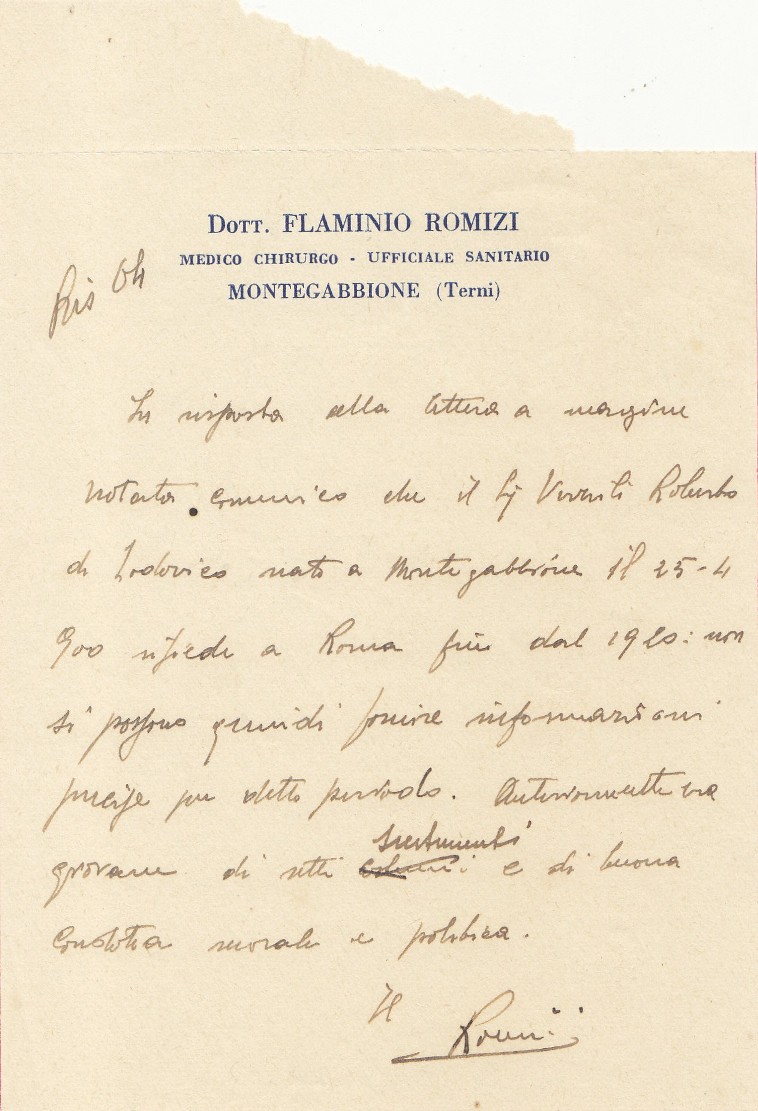 Dott. FLAMINIO ROMIZI
MEDICO CHIRURGO - UFFICIALE SANITARIO
MONTEGABBIONE (Terni)
Ris
In risposta alla lettera a margine
notata comunico che il Sig Viventi Roberto
di Lodovico nato a Montegabbione il 25-4
900 risiede a Roma fin dal 1920: non
si possono quindi fornire informazioni
precise per detto periodo. Anteriormente era
sentimenti
giovane di retti e di buona
condotta morale e politica.
Il
Romizi